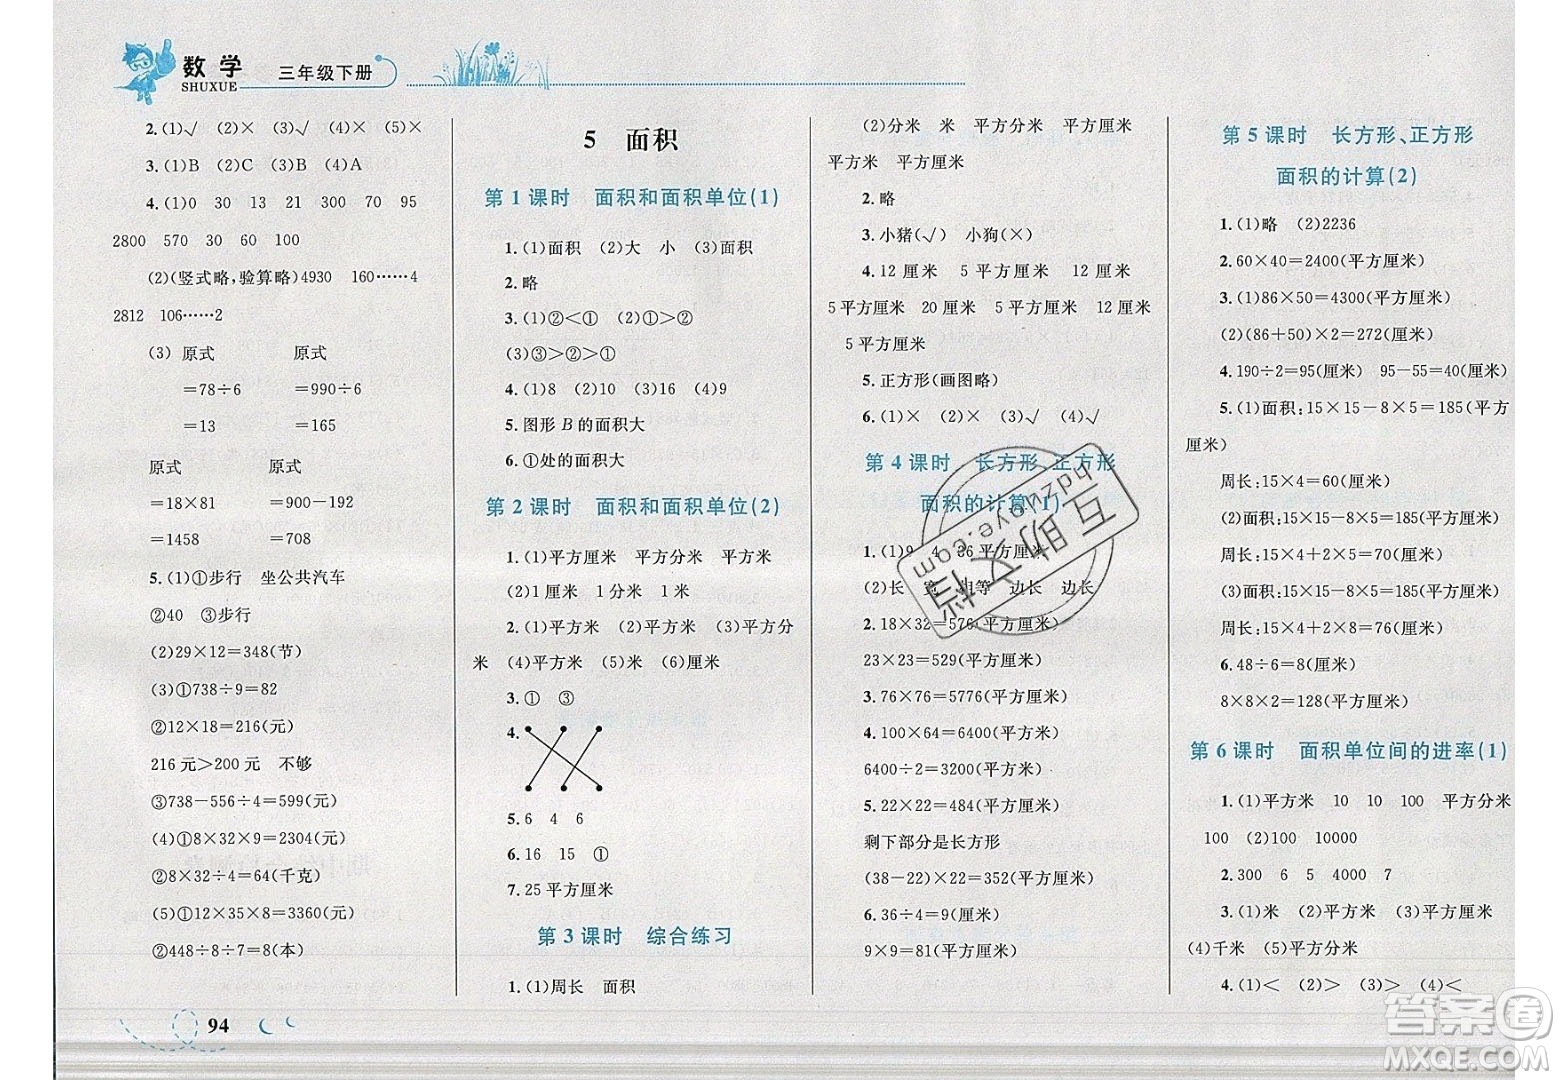 数学
SHUXUE
三年级下册
2.(1)√ (2)× (3)√ (4)× (5)×
3.(1)B (2)C (3)B (4)A
4.(1)0 30 13 21 300 70 95
2800 570 30 60 100
(2)(竖式略,验算略)4930 160……4
2812 106……2
(3) 原式 原式
=78÷6 =990÷6
=13 =165
原式 原式
=18×81 =900-192
=1458 =708
5.(1)①步行 坐公共汽车
②40 ③步行
(2)29×12=348(节)
(3)①738÷9=82
②12×18=216(元)
216元>200元 不够
③738-556÷4=599(元)
(4)①8×32×9=2304(元)
②8×32÷4=64(千克)
(5)①12×35×8=3360(本)
②448÷8÷7=8(本)
94
5 面积
第1课时 面积和面积单位(1)
1.(1)面积 (2)大 小 (3)面积
2.略
3.(1)②<① (2)①>②
(3)③>②>①
4.(1)8 (2)10 (3)16 (4)9
5.图形B的面积大
6.①处的面积大
第2课时 面积和面积单位(2)
1.(1)平方厘米 平方分米 平方米
(2)1厘米 1分米 1米
2.(1)平方米 (2)平方米 (3)平方分
米 (4)平方米 (5)米 (6)厘米
3.① ③
4.
5.6 4 6
6.16 15 ①
7.25平方厘米
第3课时 综合练习
1.(1)周长 面积
(2)分米 米 平方分米 平方厘米
平方米 平方厘米
2.略
3.小猪(√) 小狗(×)
4.12厘米 5平方厘米 12厘米
5平方厘米 20厘米 5平方厘米 12厘米
5平方厘米
5.正方形(画图略)
6.(1)× (2)× (3)√ (4)√
第4课时 长方形、正方形
面积的计算(1)
1.(1)9 4 36平方厘米
(2)长 宽 相等 边长 边长
2.18×32=576(平方厘米)
23×23=529(平方厘米)
3.76×76=5776(平方厘米)
4.100×64=6400(平方厘米)
6400÷2=3200(平方厘米)
5.22×22=484(平方厘米)
剩下部分是长方形
(38-22)×22=352(平方厘米)
6.36÷4=9(厘米)
9×9=81(平方厘米)
第5课时 长方形、正方形
面积的计算(2)
1.(1)略 (2)2236
2.60×40=2400(平方厘米)
3.(1)86×50=4300(平方厘米)
(2)(86+50)×2=272(厘米)
4.190÷2=95(厘米) 95-55=40(厘米)
5.(1)面积:15×15-8×5=185(平方
厘米)
周长:15×4=60(厘米)
(2)面积:15×15-8×5=185(平方厘米)
周长:15×4+5×2=70(厘米)
(3)面积:15×15-8×5=185(平方厘米)
周长:15×4+8×2=76(厘米)
6.48÷6=8(厘米)
8×8×2=128(平方厘米)
第6课时 面积单位间的进率(1)
1.(1)平方米 10 10 100 平方分米
100 (2)100 10000
2.300 6 5 4000 7
3.(1)米 (2)平方米 (3)平方厘米
(4)千米 (5)平方分米
4.(1)< (2)> (3)> (4)<
互助文档
hdzuoye.com
答案圈
MXQE.COM